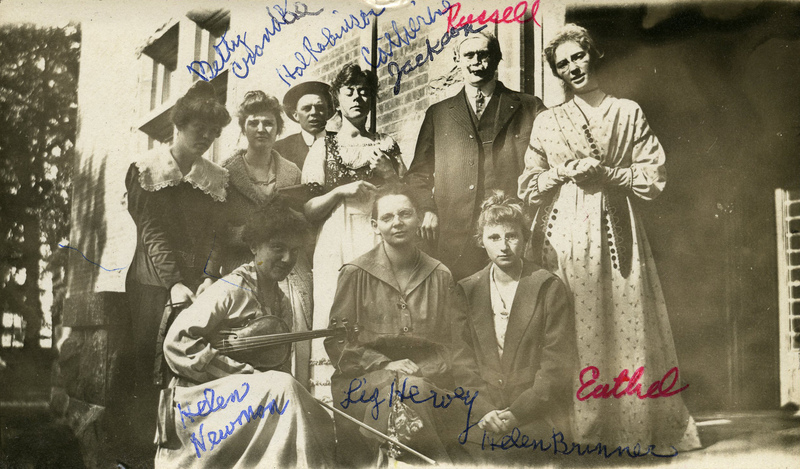 Betty
Hal Robinson
Catherine
Jackson
Russell
Helen
Newman
Liz Hervey
Helen Brunner
Eathel